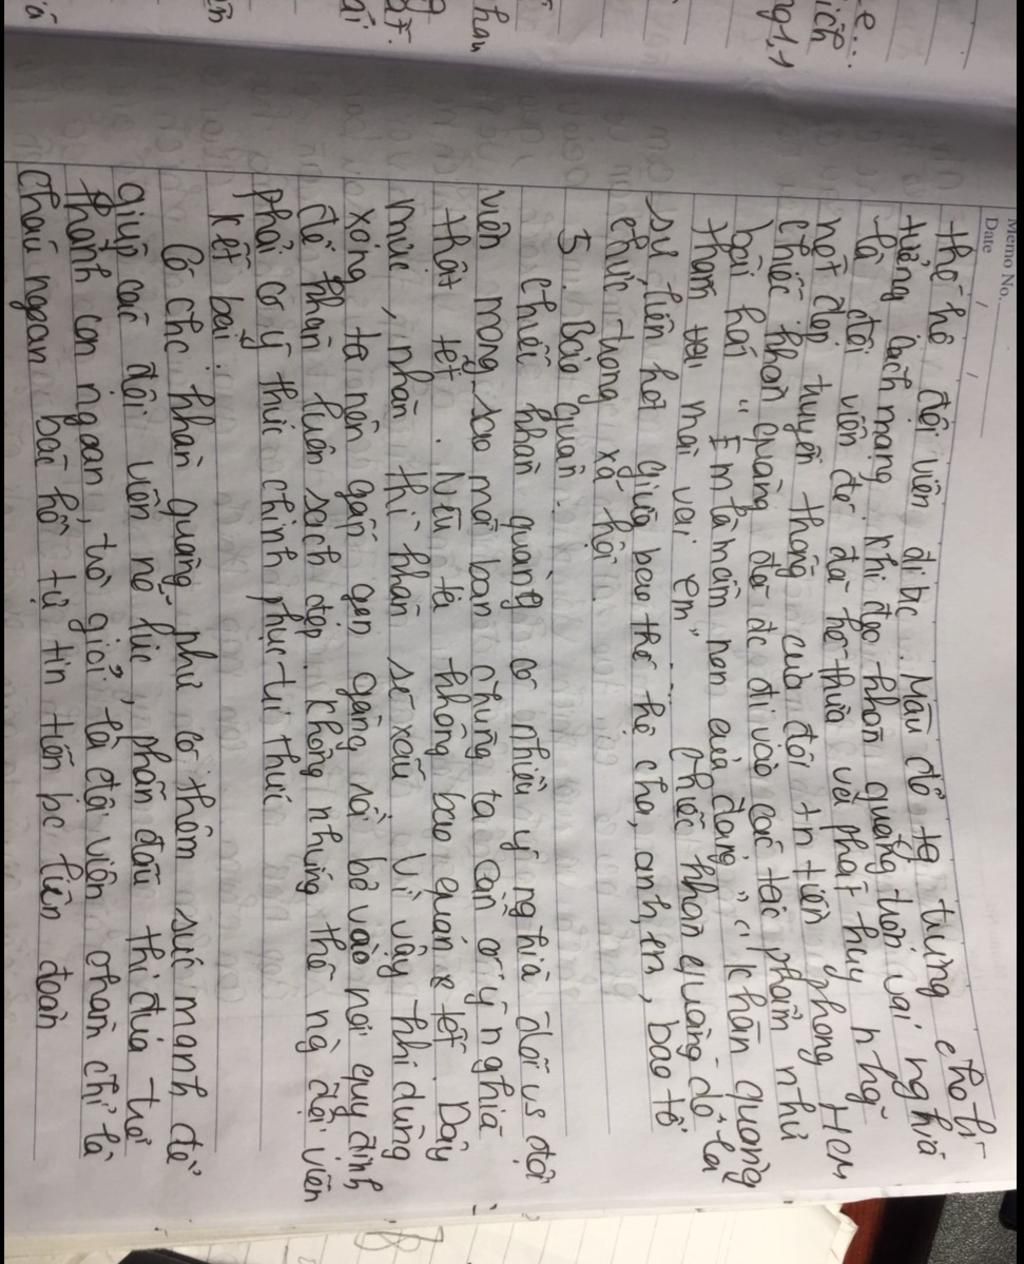 Memo No.
Date / /
thế hệ đội viên đi bc. Màu đỏ tg trưng cho lí
tưởng cách mạng. Khi đeo khăn quàng trên vai nghĩa
là đội viên đó đã kế thừa và phát huy nhg
nét đẹp truyền thống của đội tn tiền phong HCM
chiếc khăn quàng đỏ đc đi vào các tác phẩm như
bài hát " Em là mầm non của đảng ", " khăn quàng
thắm vai mãi vai em". Chiếc khăn quàng đỏ là
sự liên hợi giữa bao thế hệ cha, anh, em, bao tổ
chức trong xã hội.
5. Bảo quản.
Chiếc khăn quàng có nhiều ý nghĩa đối vs đội
viên mong sao mỗi bạn chúng ta cần có ý nghĩa
thật tết. Nếu ta không bảo quản tết. Dây
mức, nhăn thì khăn sẽ xấu. Vì vậy khi dùng
xong ta nên gấp gọn gàng rồi bỏ vào nơi quy định
để khăn luôn sạch đẹp. Không những thế ng đội viên
phải có ý thức chinh phục tri thức
Kết bài:
Có chc khăn quàng như có thêm sức mạnh để
giúp các đội viên nỗ lực, phấn đấu thi đua trở
thành con ngoan, trò giỏi, là đội viên chăm chỉ là
cháu ngoan bác hồ tự tin tiến bc lên đoàn